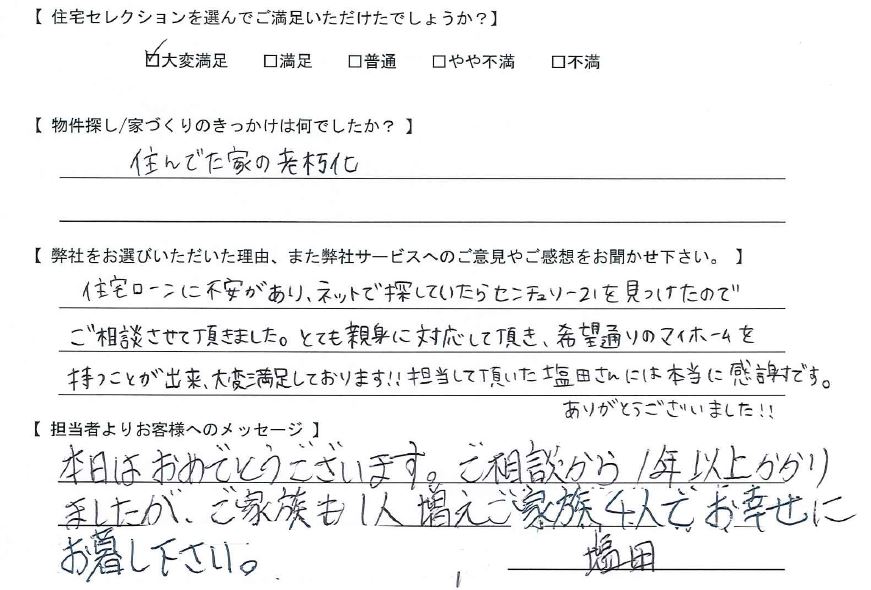 【 住宅セレクションを選んでご満足いただけたでしょうか？】
☑大変満足 □満足 □普通 □やや不満 □不満
【 物件探し/家づくりのきっかけは何でしたか？ 】
住んでた家の老朽化
【 弊社をお選びいただいた理由、また弊社サービスへのご意見やご感想をお聞かせ下さい。 】
住宅ローンに不安があり、ネットで探していたらセンチュリー21を見つけたので
ご相談させて頂きました。とても親身に対応して頂き、希望通りのマイホームを
持つことが出来、大変満足しております!!担当して頂いた塩田さんには本当に感謝です。
ありがとうございました!!
【 担当者よりお客様へのメッセージ 】
本日はおめでとうございます。ご相談から1年以上かかり
ましたが、ご家族も1人増えご家族4人でお幸せに
お暮し下さい。
塩田